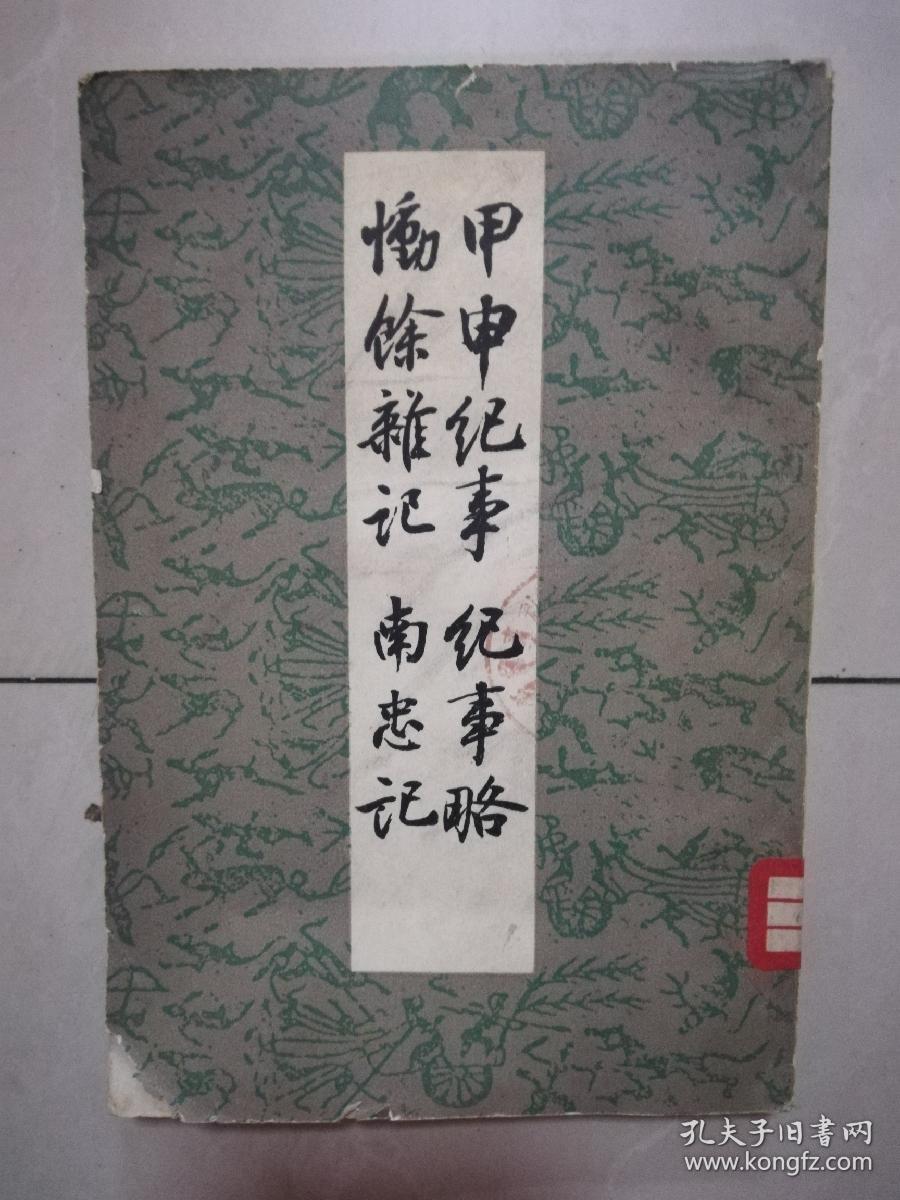 甲申紀事 紀事略
慟餘雜记 南忠记
孔夫子旧書网
www.kongfz.com